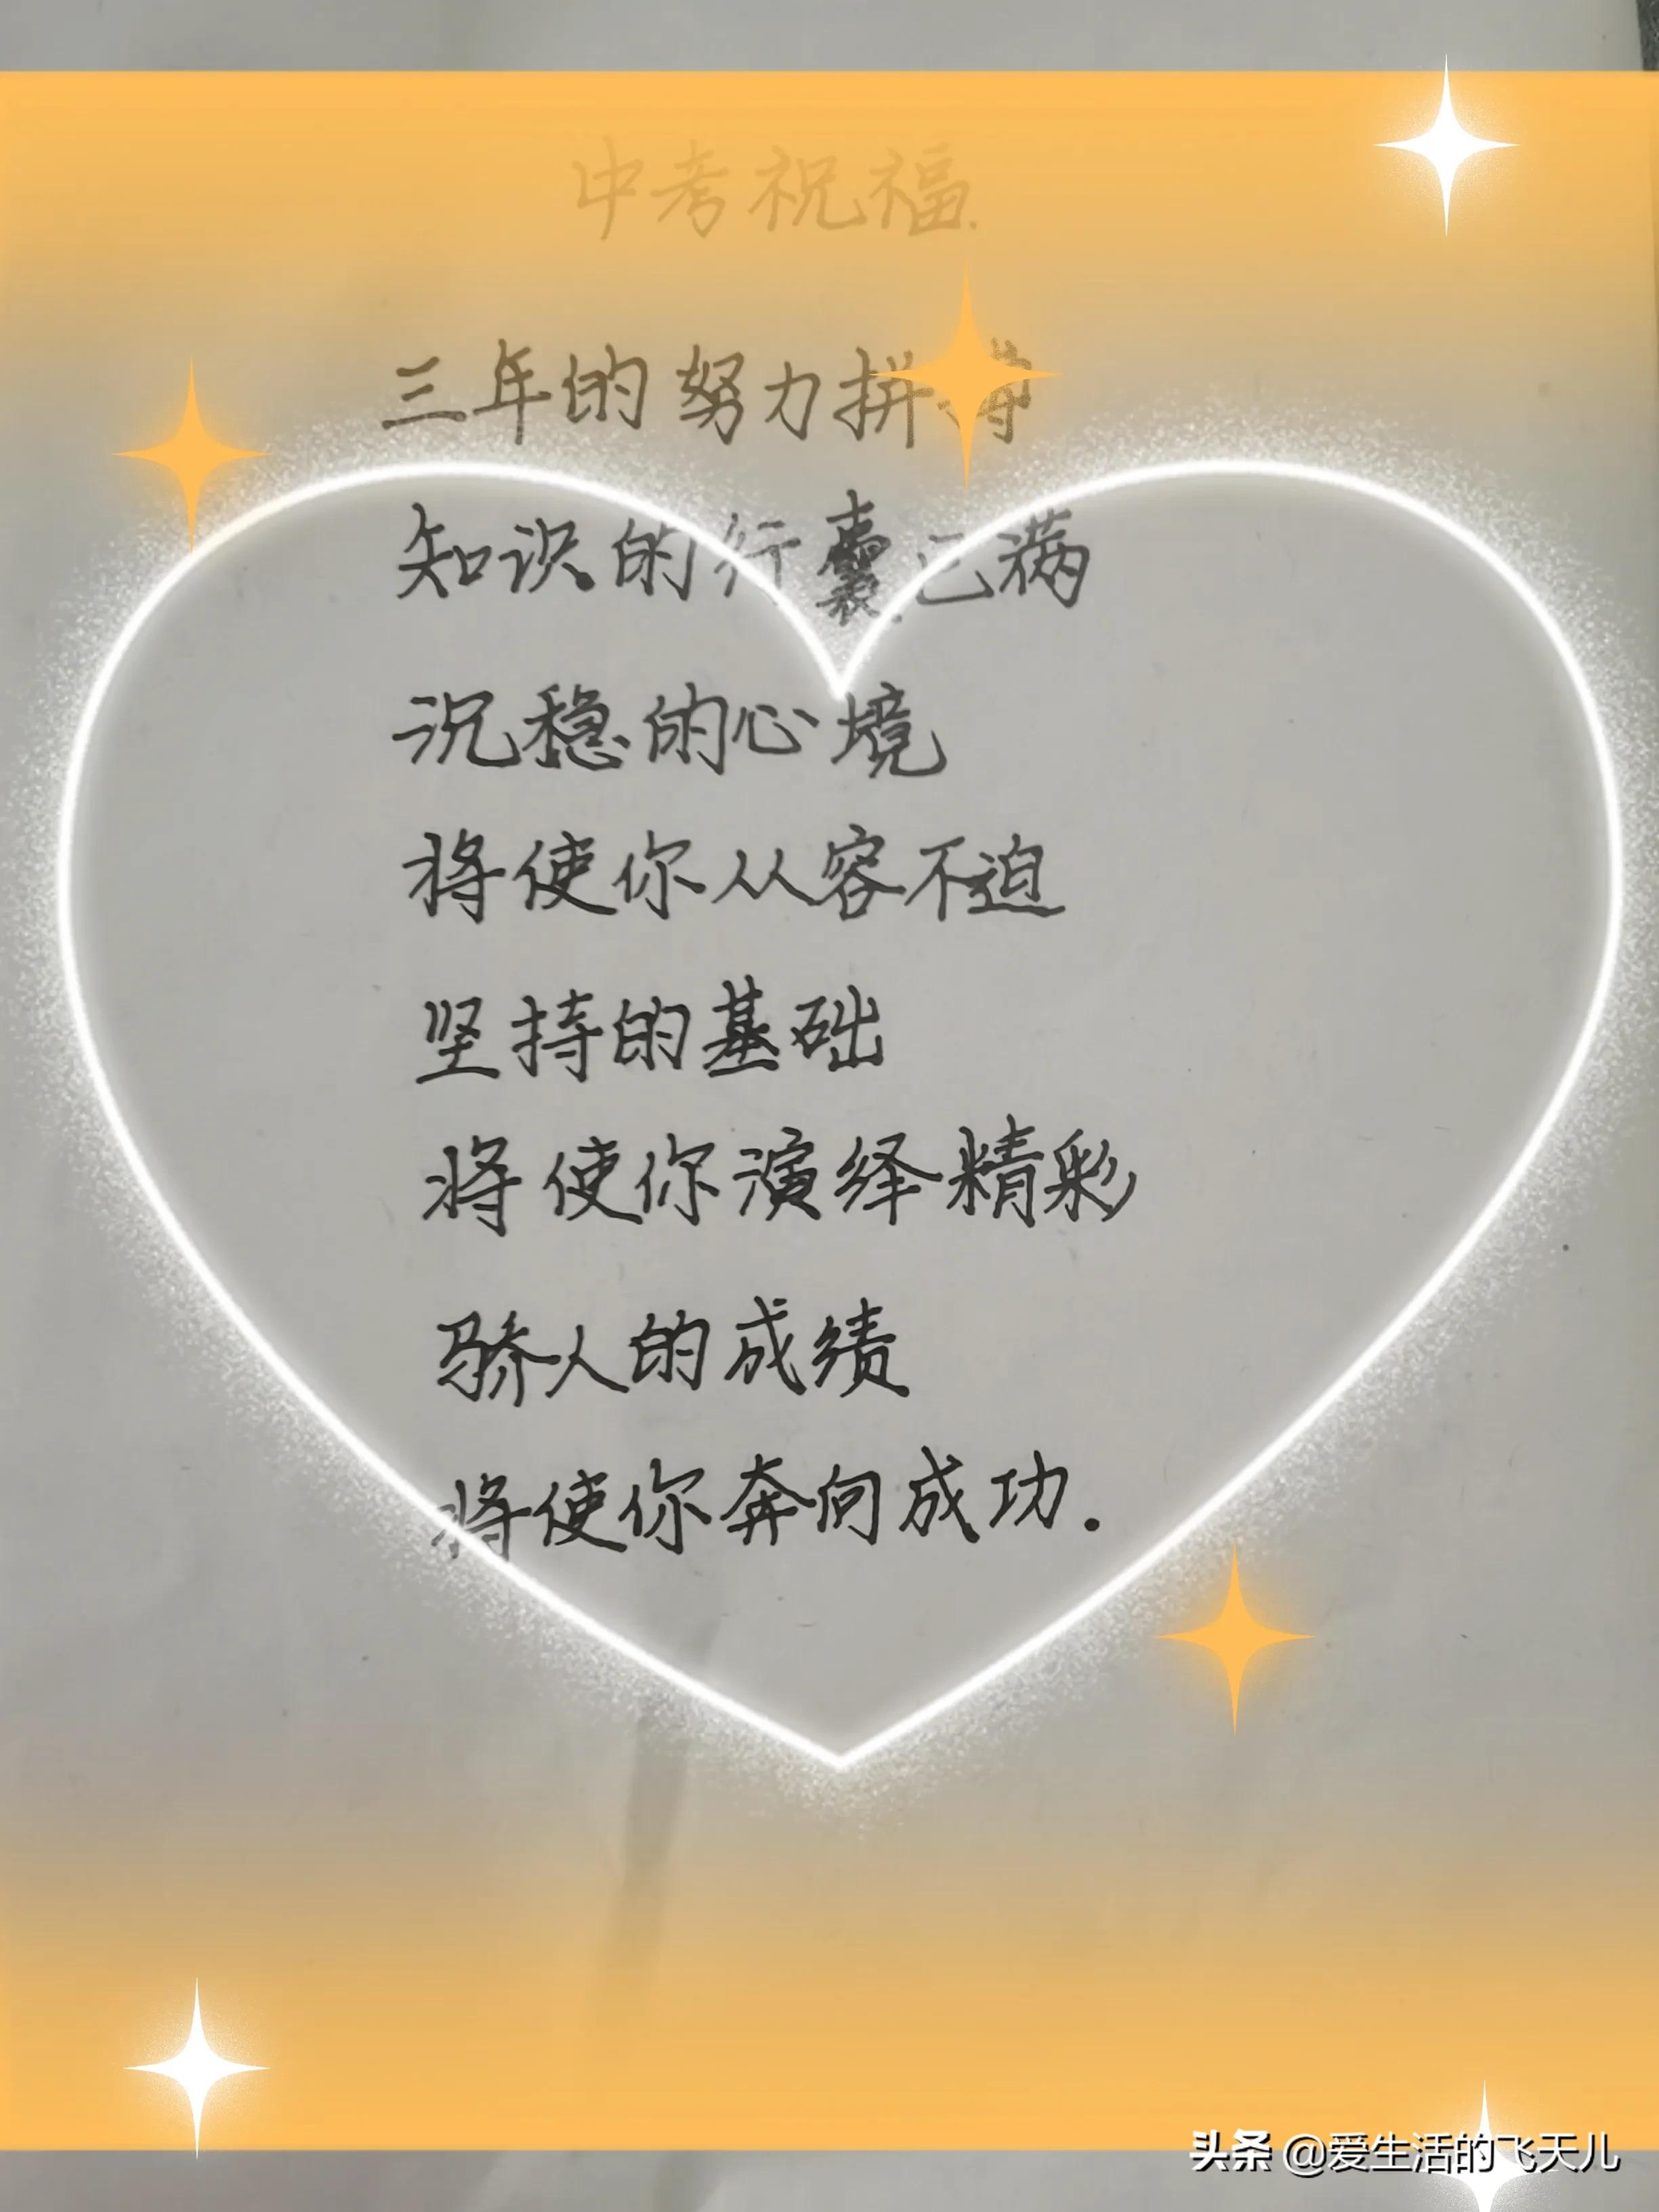 中考祝福.
三年的努力拼搏
知识的行囊已满
沉稳的心境
将使你从容不迫
坚持的基础
将使你演绎精彩
骄人的成绩
将使你奔向成功.
头条 @爱生活的飞天儿